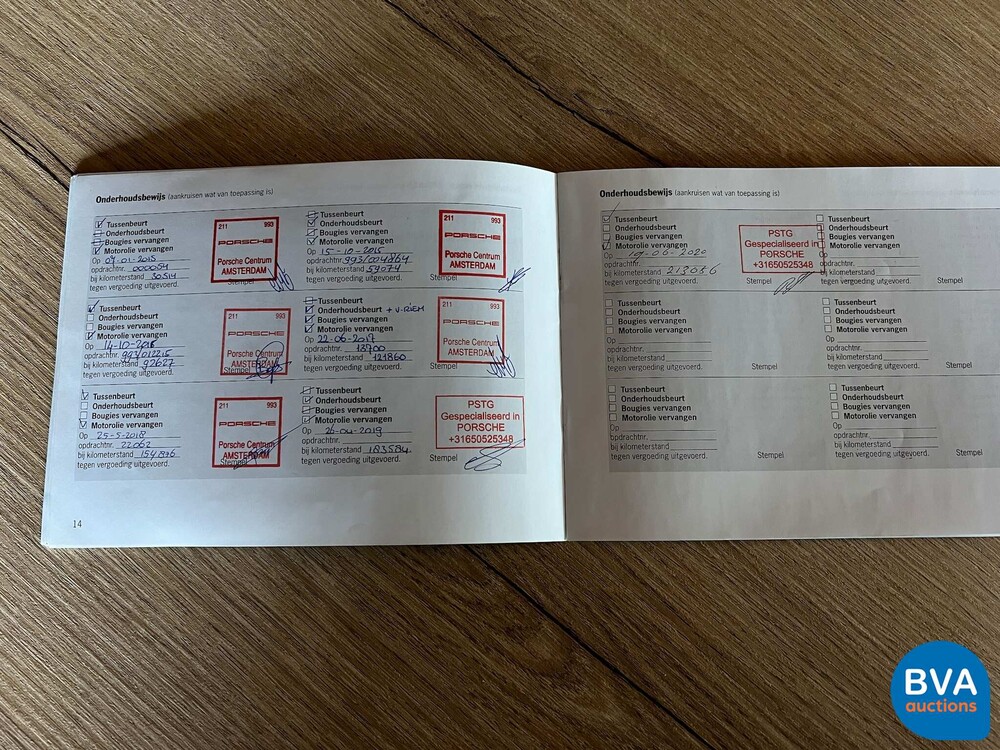 Onderhoudsbewijs (aankruisen wat van toepassing is)
Tussenbeurt
Onderhoudsbeurt
Bougies vervangen
Motorolie vervangen
Op 07-01-2015
opdrachtnr. 000054
bij kilometerstand 30514
tegen vergoeding uitgevoerd.
211 993
PORSCHE
Porsche Centrum
AMSTERDAM
Tussenbeurt
Onderhoudsbeurt
Bougies vervangen
Motorolie vervangen
Op 15-10-2015
opdrachtnr. 993/004864
bij kilometerstand 59074
tegen vergoeding uitgevoerd.
Stempel
211 993
PORSCHE
Porsche Centrum
AMSTERDAM
Tussenbeurt
Onderhoudsbeurt
Bougies vervangen
Motorolie vervangen
Op 14-10-2016
opdrachtnr. 993/012215
bij kilometerstand 92627
tegen vergoeding uitgevoerd.
Stempel
211 993
PORSCHE
Porsche Centrum
AMSTERDAM
Tussenbeurt
Onderhoudsbeurt + V-RIEM
Bougies vervangen
Motorolie vervangen
Op 22-06-2017
opdrachtnr. 18700
bij kilometerstand 121860
tegen vergoeding uitgevoerd.
211 993
PORSCHE
Porsche Centrum
AMSTERDAM
Tussenbeurt
Onderhoudsbeurt
Bougies vervangen
Motorolie vervangen
Op 25-5-2018
opdrachtnr. 22062
bij kilometerstand 154846
tegen vergoeding uitgevoerd.
Stempel
211 993
PORSCHE
Porsche Centrum
AMSTERDAM
Tussenbeurt
Onderhoudsbeurt
Bougies vervangen
Motorolie vervangen
Op 26-04-2019
opdrachtnr.
bij kilometerstand 183584
tegen vergoeding uitgevoerd.
Stempel
PSTG
Gespecialiseerd in
PORSCHE
+31650525348
14
Onderhoudsbewijs (aankruisen wat van toepassing is)
Tussenbeurt
Onderhoudsbeurt
Bougies vervangen
Motorolie vervangen
Op 19-06-2020
opdrachtnr.
bij kilometerstand 213086
tegen vergoeding uitgevoerd.
Stempel
PSTG
Gespecialiseerd in
PORSCHE
+31650525348
Tussenbeurt
Onderhoudsbeurt
Bougies vervangen
Motorolie vervangen
Op
opdrachtnr.
bij kilometerstand
tegen vergoeding uitgevoerd.
Stempel
Tussenbeurt
Onderhoudsbeurt
Bougies vervangen
Motorolie vervangen
Op
opdrachtnr.
bij kilometerstand
tegen vergoeding uitgevoerd.
Stempel
Tussenbeurt
Onderhoudsbeurt
Bougies vervangen
Motorolie vervangen
Op
opdrachtnr.
bij kilometerstand
tegen vergoeding uitgevoerd.
Stempel
Tussenbeurt
Onderhoudsbeurt
Bougies vervangen
Motorolie vervangen
Op
opdrachtnr.
bij kilometerstand
tegen vergoeding uitgevoerd.
Stempel
Tussenbeurt
Onderhoudsbeurt
Bougies vervangen
Motorolie vervangen
Op
opdrachtnr.
bij kilometerstand
tegen vergoeding uitgevoerd.
Stempel
BVA
auctions